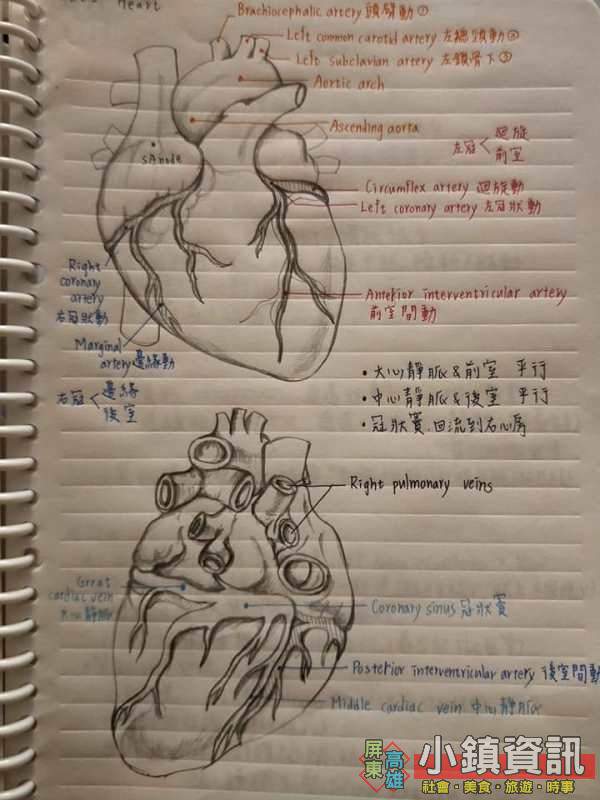 Heart
Brachiocephalic artery 頭臂動①
Left common carotid artery 左總頸動②
Left subclavian artery 左鎖骨下③
Aortic arch
Ascending aorta
左冠<迴旋
前室
SA node
Circumflex artery 迴旋動
Left coronary artery 左冠狀動
Right
coronary
artery
右冠狀動
Anterior interventricular artery
前室間動
Marginal
artery 邊緣動
右冠<邊緣
後室
•大心靜脈&前室 平行
•中心靜脈&後室 平行
•冠狀竇.回流到右心房
Right pulmonary veins
Great
cardiac vein
大心靜脈
Coronary sinus 冠狀竇
Posterior interventricular artery 後室間動
Middle cardiac vein 中心靜脈
屏東
高雄
小鎮資訊
社會・美食・旅遊・時事